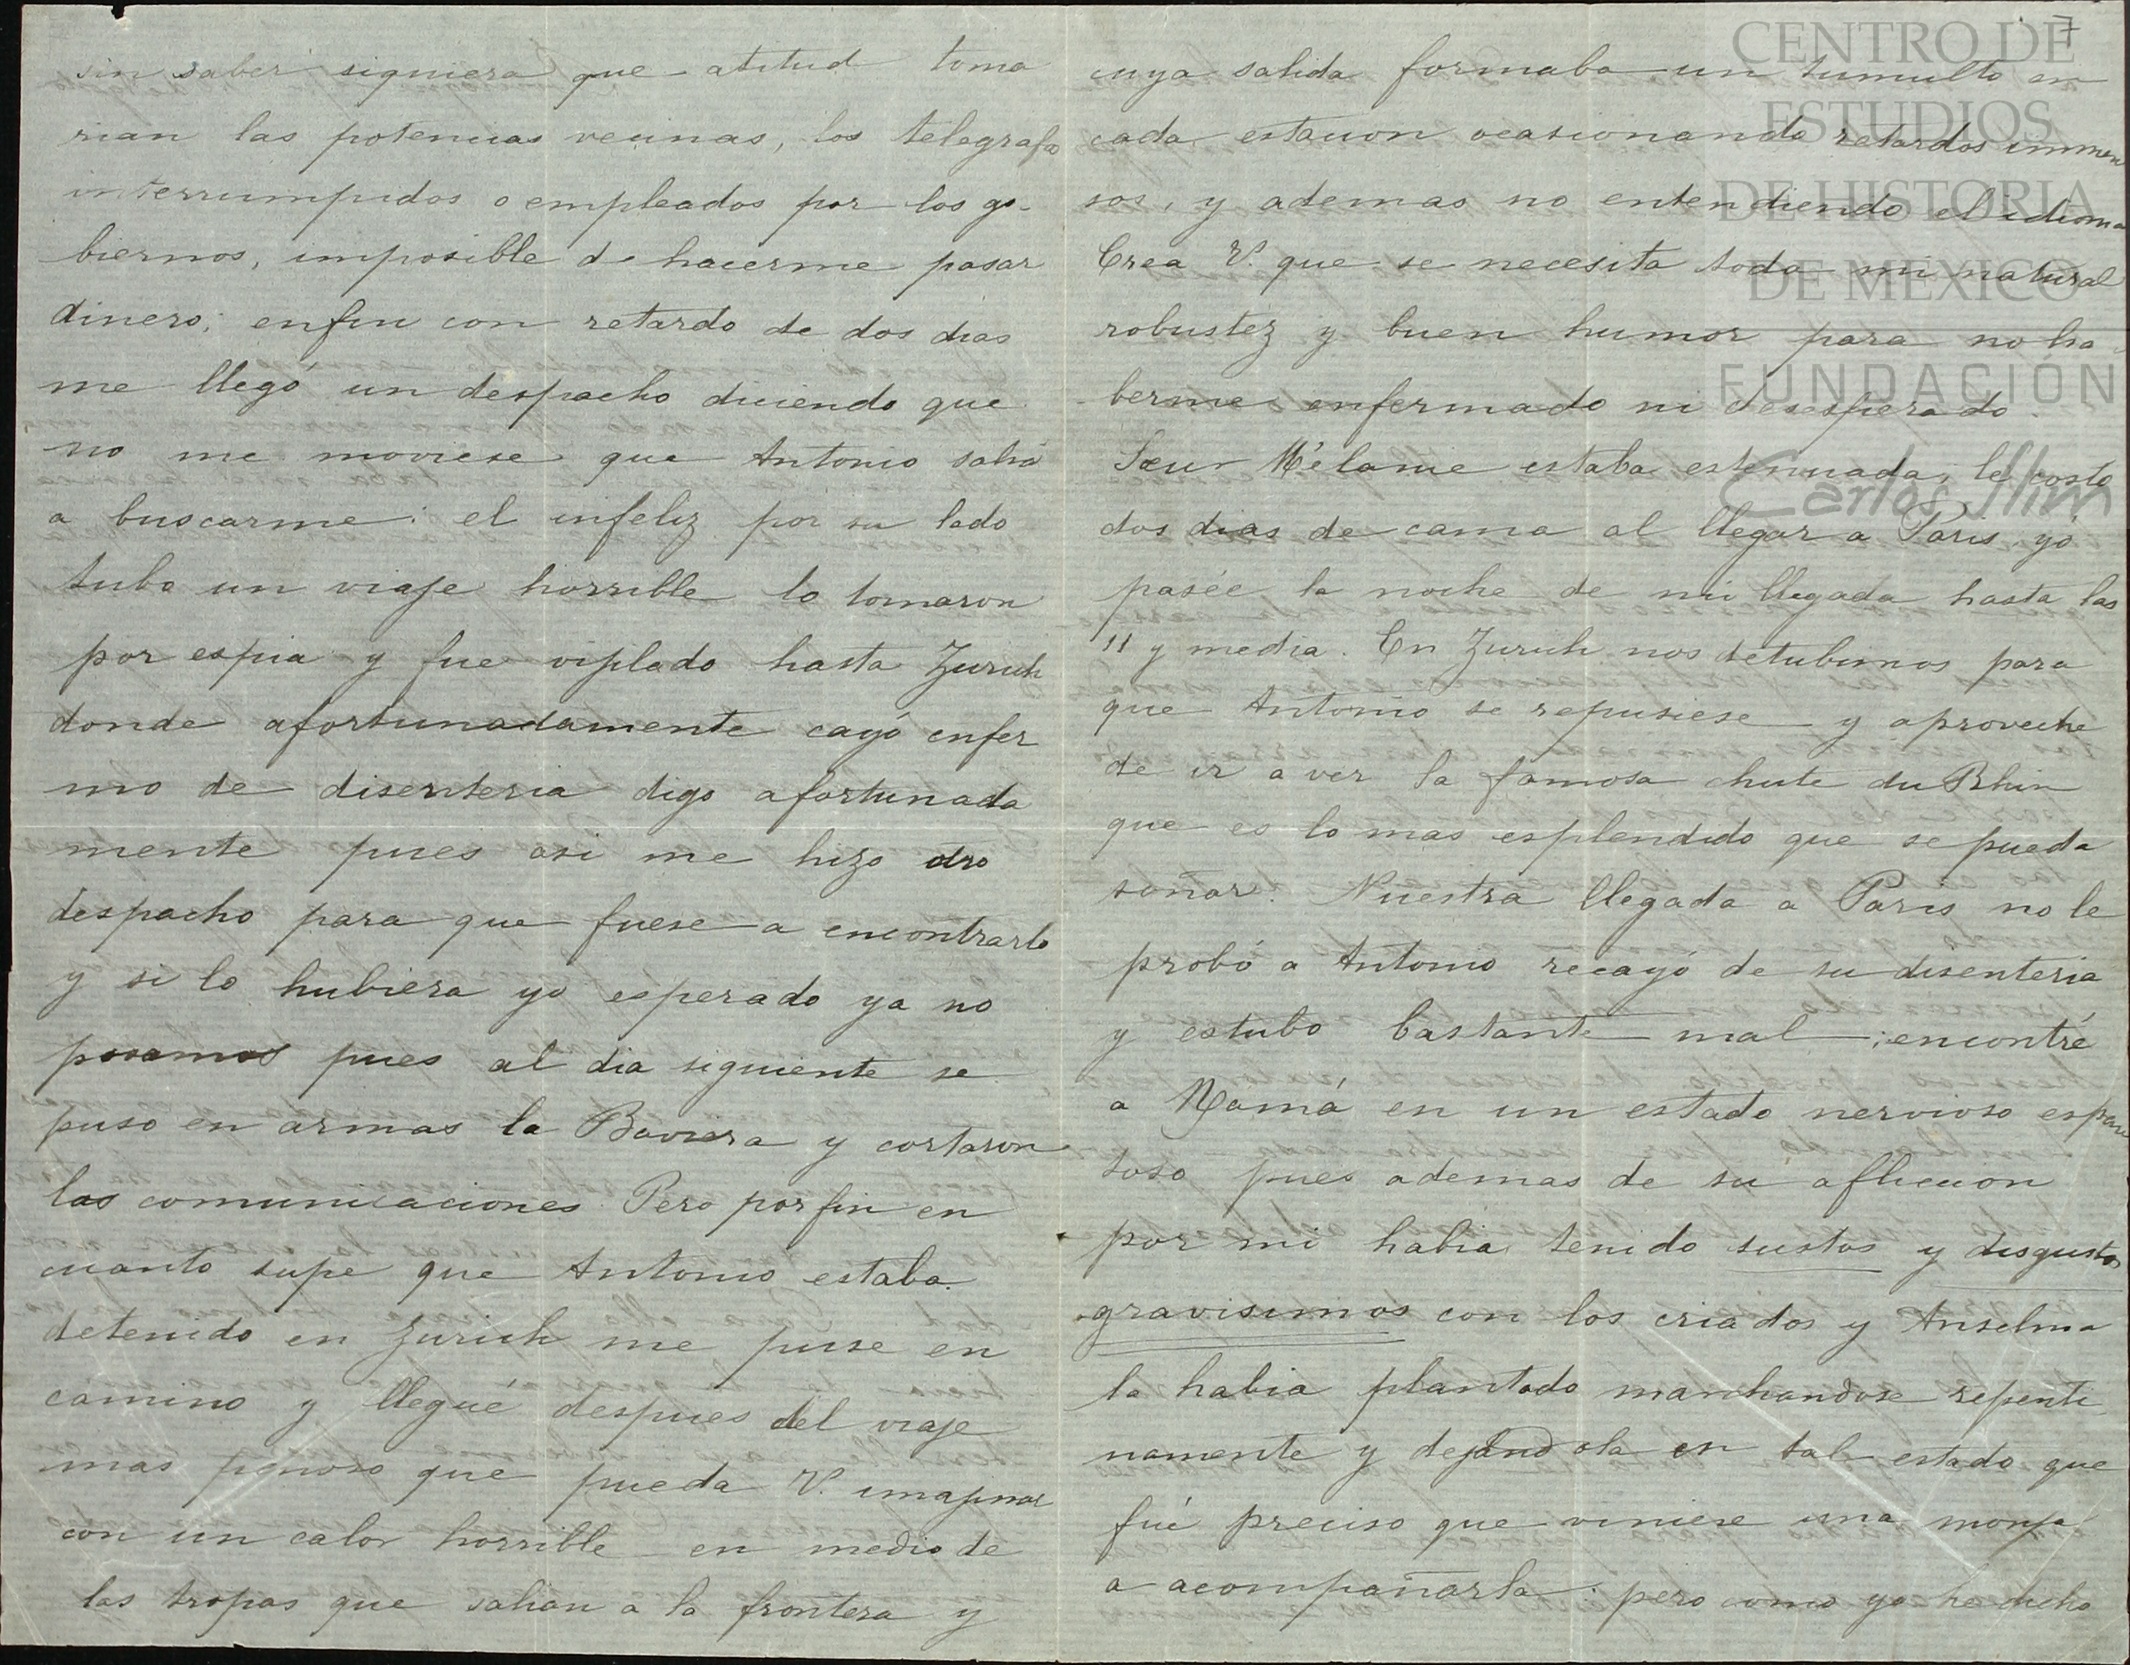 sin saber siquiera que atitud toma
rian las potencias vecinas, los telegrafos
interrumpidos o empleados por los go-
biernos, imposible de hacerme pasar
dinero; enfin con retardo de dos dias
me llegó un despacho diciendo que
no me moviese que Antonio salia
a buscarme: el infeliz por su lado
tubo un viaje horrible lo tomaron
por espia y fue vijilado hasta Zurich
donde afortunadamente cayó enfer
mo de disenteria digo afortunada
mente pues asi me hizo otro
despacho para que fuese a encontrarlo
y si lo hubiera yo esperado ya no
pasamos pues al dia siguiente se
puso en armas la Baviera y cortaron
las comunicaciones. Pero por fin en
cuanto supe que Antonio estaba
detenido en Zurich me puse en
camino y llegué despues del viaje
mas penoso que pueda V. imajinar
con un calor horrible en medio de
las tropas que salian a la frontera y
7
cuya salida formaba un tumulto en
cada estacion ocasionando retardos inmen
sos, y ademas no entendiendo el idioma
Crea V. que se necesita toda mi natural
robustez y buen humor para no ha
berme enfermado ni desesperado.
Sœur Mélanie estaba estenuada, le costo
dos dias de cama al llegar a Paris, yó
pasée la noche de mi llegada hasta las
11 y media. En Zurich nos detubimos para
que Antonio se repusiese y aproveche
de ir a ver la famosa chute du Rhin
que es lo mas esplendido que se pueda
soñar. Nuestra llegada a Paris no le
probó a Antonio recayó de su disenteria
y estubo bastante mal; encontré
a Mamá en un estado nervioso espan
toso pues ademas de su aflicción
por mi habia tenido sustos y disgustos
gravisimos con los criados y Anselma
la habia plantado marchandose repenti
namente y dejandola en tal estado que
fué preciso que viniese una monja
a acompañarla. pero como yo he dicho
CENTRO DE
ESTUDIOS
DE HISTORIA
DE MEXICO
FUNDACIÓN
Carlos Slim